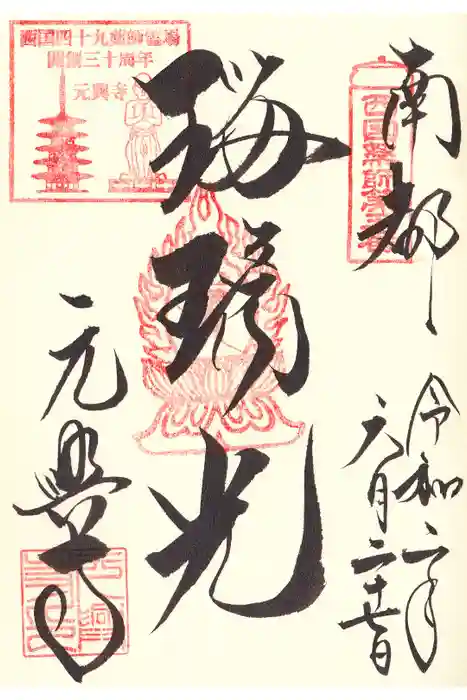 南都
令和二年
六月二十七日
瑠璃光
元興寺
西国四十九薬師霊場
開創三十周年
元興寺